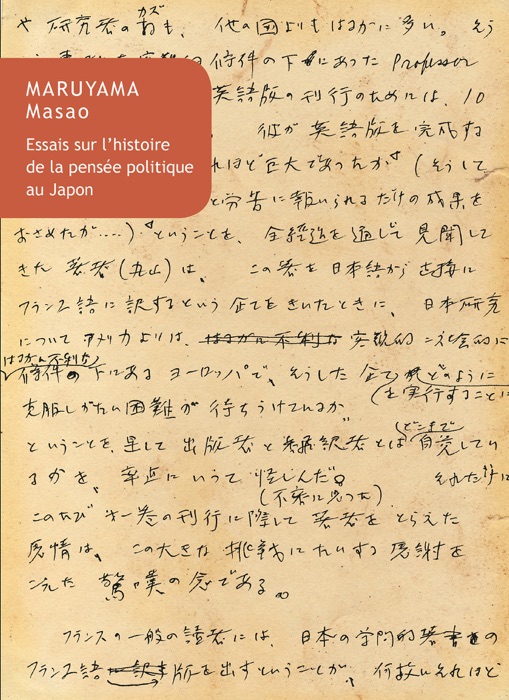 や 研究者の カズ 数も、他の国よりもはるかに多い。そう
条件の下にあった Professor
MARUYAMA
Masao
Essais sur l'histoire
de la pensée politique
au Japon
英語版の刊行のためには、10
彼が 英語版を完成する
れほど巨大であったか(そうして
と労苦に報いられるだけの成果を
おさめたか……)ということを、全経過を通じて見聞して
きた 著者(丸山)は、この書を日本語から直接に
フランス語に訳するという企てをきいたときに、日本研究
について アメリカよりは、はるかに不利な 客観的
はるかに不利な
条件の下にある ヨーロッパで、そうした企て どのように
を実行することに
克服しがたい困難が待ちうけているか
ということを、果して出版者と翻訳者とは どこまで 自覚してい
るかを、率直にいって怪しんだ。
(不審に思った)
このたび 第一巻の刊行に際して著者をとらえた
感情は、この大きな挑戦にたいする感謝を
こえた驚嘆の念である。
フランスの一般の読者には、日本の学問的著書の
フランス語 訳 版を出すということが、何故いそれほど